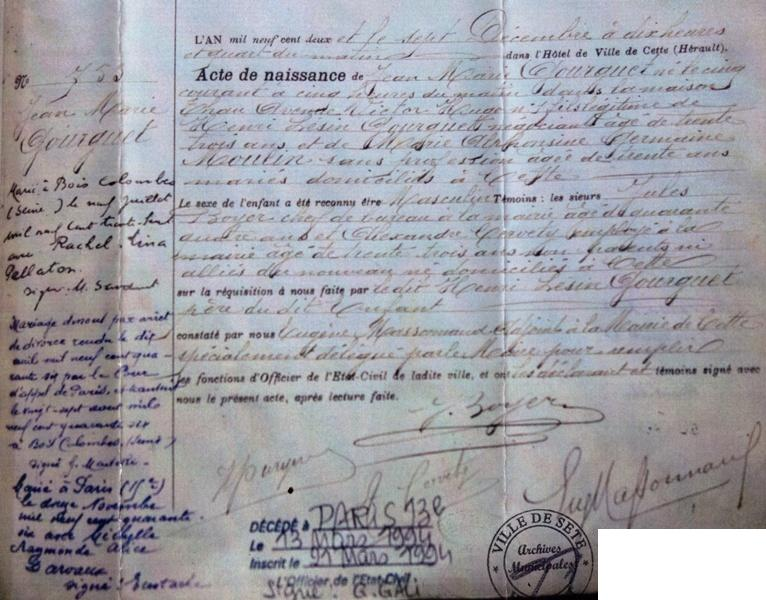 L'AN mil neuf cent deux et le sept Décembre à dix heures
et quart du matin dans l'Hôtel de Ville de Cette (Hérault).
Acte de naissance de Jean Marie Gourguet né le cinq
courant à cinq heures du matin dans la maison
Thau Avenue Victor Hugo n° fils légitime de
Henri Lésin Gourguet négociant âgé de trente
trois ans, et de Marie Alphonsine Germaine
Moulin sans profession âgée de trente ans
mariés domiciliés à Cette
Le sexe de l'enfant a été reconnu être Masculin Témoins : les sieurs Jules
Boyer chef de bureau à la mairie âgé de quarante
quatre ans et Alexandre Cervety employé à la
mairie âgé de trente trois ans non parents ni
alliés du nouveau né domiciliés à Cette
sur la réquisition à nous faite par le dit Henri Lésin Gourguet
père du dit Enfant
constaté par nous Eugène Massonnaud Adjoint à la Mairie de Cette
spécialement délégué par le Maire pour remplir
les fonctions d'Officier de l'Etat-Civil de ladite ville, et ont les déclarant et témoins signé avec
nous le présent acte, après lecture faite.
J. Boyer
Cervety
Eug Massonnaud
N° 753
Jean Marie
Gourguet
Marié à Bois Colombes
(Seine) le neuf juillet
mil neuf cent trente
avec Rachel Lina
Pellaton.
signé M.
Mariage dissout par arrêt
de divorce rendu le dix
avril mil neuf cent qua-
rante six par la Cour
d'appel de Paris,
le vingt-sept mil
neuf cent quarante six
à Bois Colombes (Seine)
signé G.
Marié à Paris (15e)
le douze Novembre
mil neuf cent quarante
six avec Michelle
Raymonde Alice
Darvaux
signé : Eustache
DÉCÉDÉ à PARIS 13e
Le 13 Mars 1994
Inscrit le 21 Mars 1994
L'Officier de l'Etat-Civil
Signé : G. GALI
VILLE DE SETE
Archives
Municipales